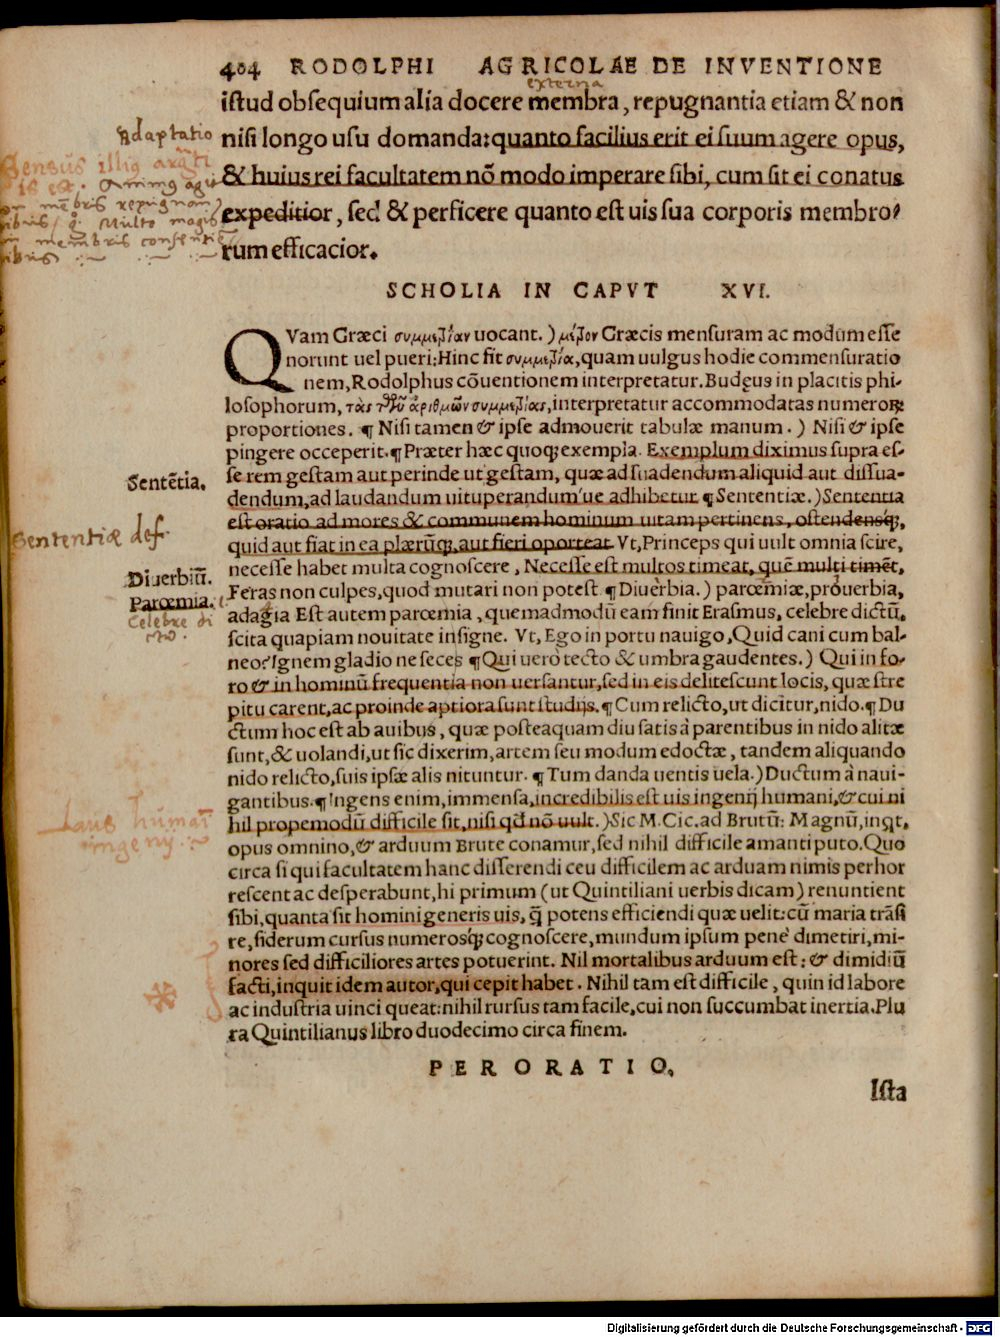 404 RODOLPHI AGRICOLAE DE INVENTIONE
externa
istud obsequium alia docere membra, repugnantia etiam & non
Adaptatio
nisi longo usu domanda: quanto facilius erit ei suum agere opus,
& huius rei facultatem nõ modo imperare sibi, cum sit ei conatus
expeditior, sed & perficere quanto est uis sua corporis membro-
rum efficacior.
SCHOLIA IN CAPVT XVI.
QVam Græci συμμετρίαν uocant.) μέτρον Græcis mensuram ac modum esse
norunt uel pueri: Hinc fit συμμετρία, quam uulgus hodie commensuratio
nem, Rodolphus cõuentionem interpretatur. Budęus in placitis phi-
losophorum, τὰς τῶν ἀριθμῶν συμμετρίας, interpretatur accommodatas numerorꝝ
proportiones. ¶ Nisi tamen & ipse admouerit tabulæ manum.) Nisi & ipse
pingere occeperit. ¶ Præter hæc quoqꝫ exempla. Exemplum diximus supra es-
se rem gestam aut perinde ut gestam, quæ ad suadendum aliquid aut dissua-
Sentētia.
dendum, ad laudandum uituperandum'ue adhibetur ¶ Sententiæ.) Sententia
est oratio ad mores & communem hominum uitam pertinens, ostendensqꝫ,
Sententiæ def.
quid aut fiat in ea plærũqꝫ, aut fieri oporteat Vt, Princeps qui uult omnia scire,
necesse habet multa cognoscere, Necesse est multos timeat, quẽ multi timẽt,
Diuerbiũ.
Feras non culpes, quod mutari non potest ¶ Diuerbia.) parœmiæ, prouerbia,
Parœmia.
adagia Est autem parœmia, quemadmodũ eam finit Erasmus, celebre dictũ,
Celebre di
scita quapiam nouitate insigne. Vt, Ego in portu nauigo, Quid cani cum bal-
neo? Ignem gladio ne seces ¶ Qui uero tecto & umbra gaudentes.) Qui in fo-
ro & in hominũ frequentia non uersantur, sed in eis delitescunt locis, quæ stre
pitu carent, ac proinde aptiora sunt studijs. ¶ Cum relicto, ut dicitur, nido. ¶ Du
ctum hoc est ab auibus, quæ posteaquam diu satis à parentibus in nido alitæ
sunt, & uolandi, ut sic dixerim, artem seu modum edoctæ, tandem aliquando
nido relicto, suis ipsæ alis nituntur. ¶ Tum danda uentis uela.) Ductum à naui-
gantibus. ¶ Ingens enim, immensa, incredibilis est uis ingenij humani, & cui ni
Laus humani
hil propemodũ difficile sit, nisi qd nõ uult.) Sic M. Cic. ad Brutũ: Magnũ, inqt,
ingenij
opus omnino, & arduum Brute conamur, sed nihil difficile amanti puto. Quo
circa si qui facultatem hanc disserendi ceu difficilem ac arduam nimis perhor
rescent ac desperabunt, hi primum (ut Quintiliani uerbis dicam) renuntient
sibi, quanta sit homini generis uis, q̃ potens efficiendi quæ uelit: cũ maria trãsi
re, siderum cursus numerosqꝫ cognoscere, mundum ipsum penè dimetiri, mi-
nores sed difficiliores artes potuerint. Nil mortalibus arduum est: & dimidiũ
facti, inquit idem autor, qui cepit habet. Nihil tam est difficile, quin id labore
ac industria uinci queat: nihil rursus tam facile, cui non succumbat inertia. Plu
ra Quintilianus libro duodecimo circa finem.
PERORATIO,
Ista
Digitalisierung gefördert durch die Deutsche Forschungsgemeinschaft - DFG